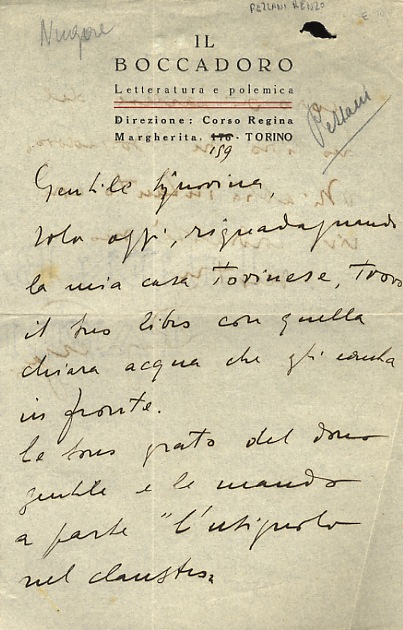 PEZZANI RENZO
Nugore
IL
BOCCADORO
Letteratura e polemica
Direzione: Corso Regina
Margherita, 176 - TORINO
159
Pezzani
Gentile Signorina,
solo oggi, riguadagnando
la mia casa torinese, trovo
il suo libro con quella
chiara acqua che gli canta
in fronte.
Le sono grato del dono
gentile e le mando
a parte "L'usignolo
nel claustro